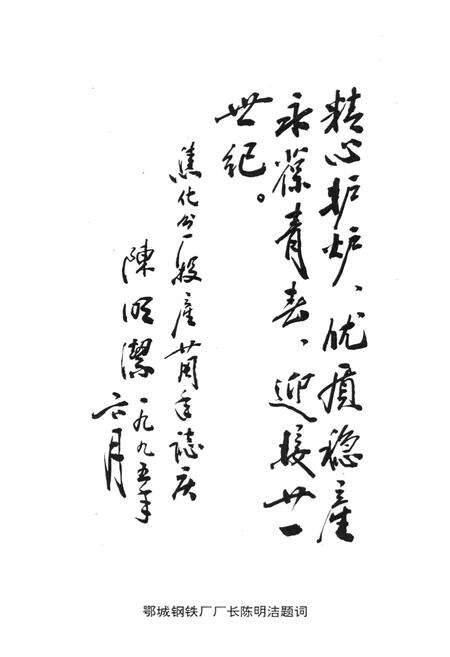 精心护炉、优质稳產
永葆青春、迎接廿一
世纪。
焦化分厂投產廿周年誌庆
陳明潔
一九九五年
六月
鄂城钢铁厂厂长陈明洁题词